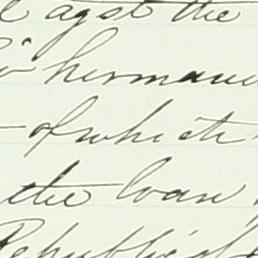 agst the
of which
the loan
Republic of